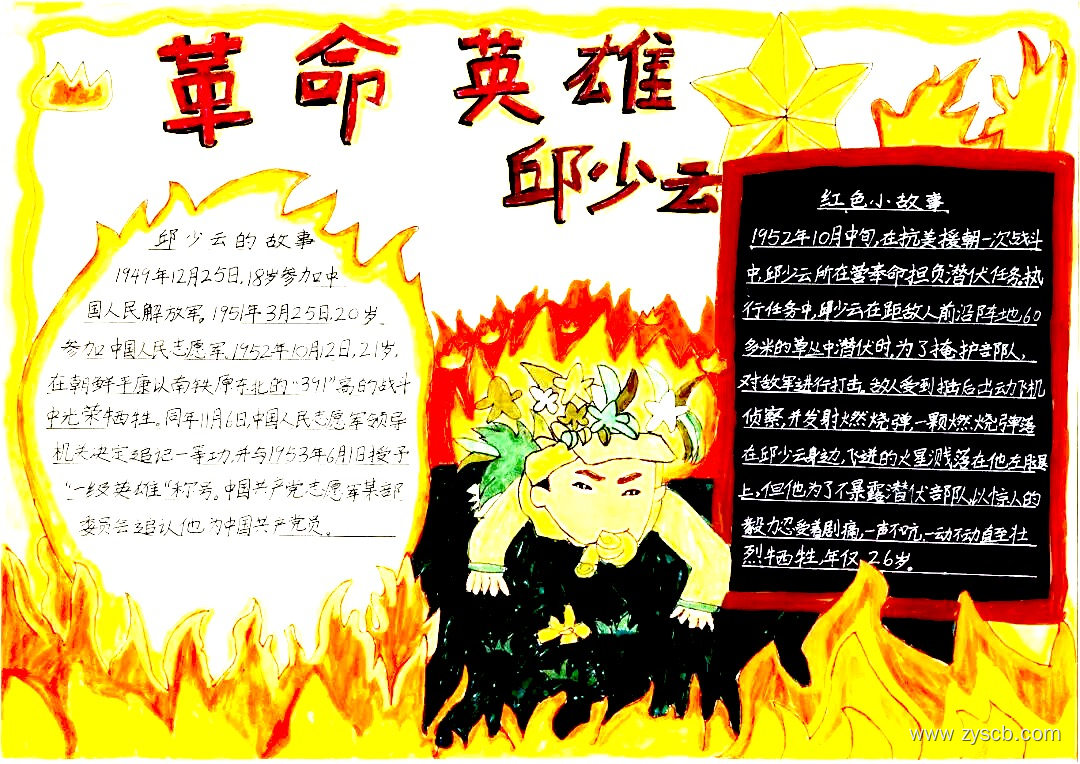 革命英雄
邱少云
邱少云的故事
1949年12月25日,18岁参加中
国人民解放军。1951年3月25日,20岁
参加中国人民志愿军,1952年10月12日,21岁,
在朝鲜平康以南铁原东北的"391"高的战斗
中光荣牺牲。同年11月6日,中国人民志愿军领导
机关决定追记一等功,并与1953年6月1日授予
"一级英雄"称号。中国共产党志愿军某部
委员会追认他为中国共产党员。
红色小故事
1952年10月中旬,在抗美援朝一次战斗
中,邱少云所在营奉命担负潜伏任务。执
行任务中,邱少云在距敌人前沿阵地,60
多米的草丛中潜伏时,为了掩护部队,
对敌军进行打击。敌人受到打击后出动飞机
侦察,并发射燃烧弹,一颗燃烧弹落
在邱少云身边,飞进的火星溅落在他左腿
上,但他为了不暴露潜伏部队,以惊人的
毅力忍受着剧痛,一声不吭,一动不动直至壮
烈牺牲,年仅26岁。
www.zyscb.com